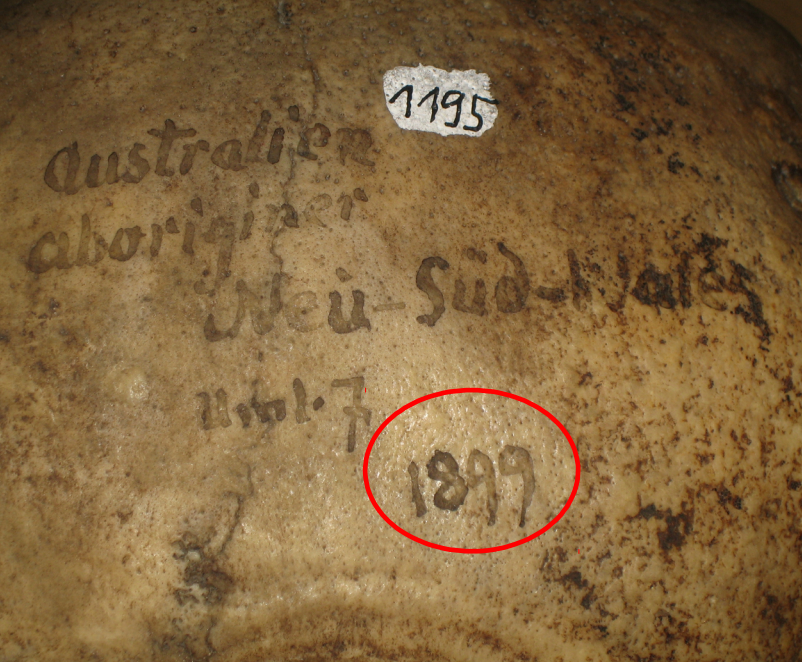 1195
Australien
aboriginer
Neu-Süd-Wales
1899